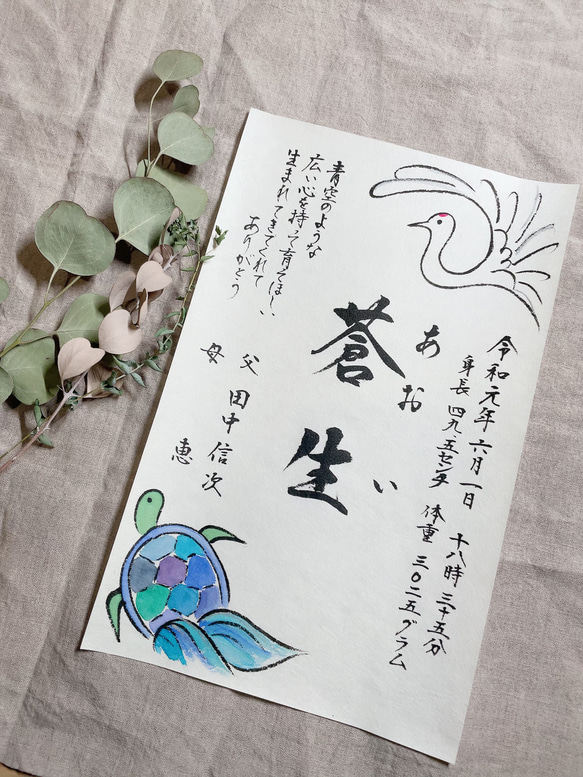 令和元年六月一日 十八時三十五分
身長 四九.五センチ 体重 三〇二五グラム
あおい
蒼生
青空のような
広い心を持って育てほしい
生まれてきてくれて
ありがとう
父 田中信次
母 恵